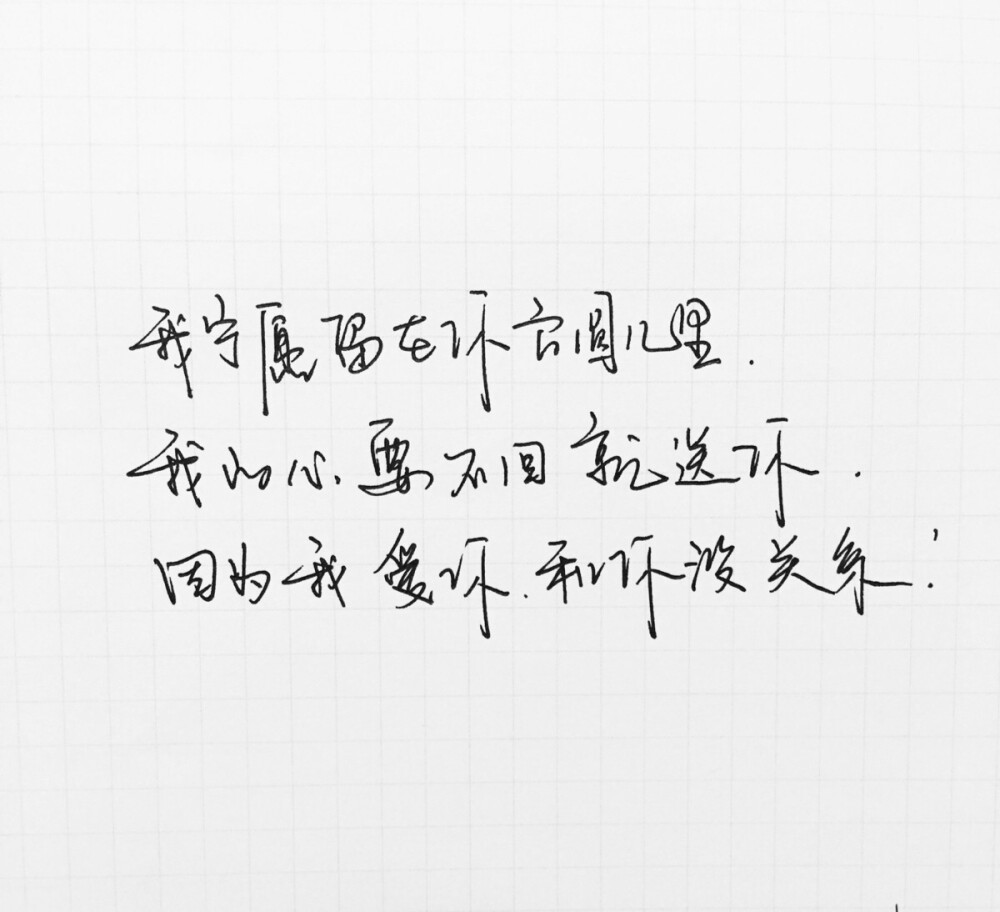 我宁愿留在你方圆几里.
我的心、要不回就送你.
因为我爱你.和你没关系.